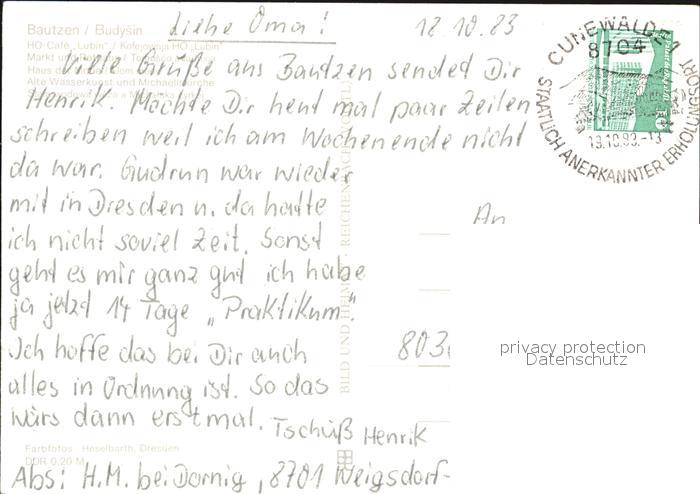 Bautzen / Budyšin
HO-Café „Lubin" / Kofejownja HO „Lubin"
Markt und Rathaus /
Haus der
Alte Wasserkunst und Michaeliskirche
Liebe Oma!
12.10.83
Viele Grüße aus Bautzen sendet Dir
Henrik. Möchte Dir heut mal paar Zeilen
schreiben weil ich am Wochenende nicht
da war. Gudrun war wieder
mit in Dresden u. da hatte
ich nicht soviel Zeit. Sonst
geht es mir ganz gut ich habe
ja jetzt 14 Tage „Praktikum".
Ich hoffe das bei Dir auch
alles in Ordnung ist. So das
wärs dann erstmal.
Tschüß Henrik
Farbfotos Heselbarth, Dresden
DDR 0,20 M
Abs: H.M. bei Dornig, 8701 Weigsdorf-
BILD UND HEIMAT REICHENBACH
CUNEWALDE 1
8704
13.10.83.-13
STAATLICH ANERKANNTER ERHOLUNGSORT
An
803
privacy protection
Datenschutz